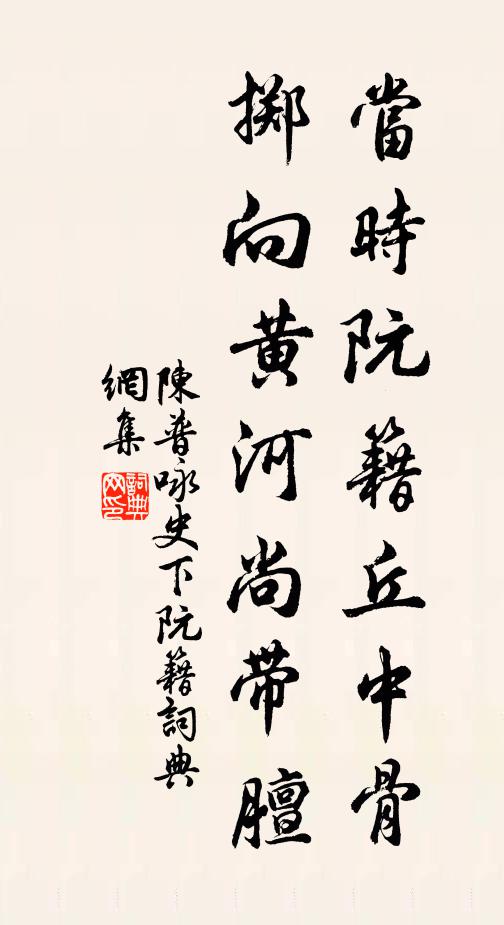 當時阮籍丘中骨
擲向黃河尚帶膻
陳普咏史下阮籍詞典
網集
詞典网印